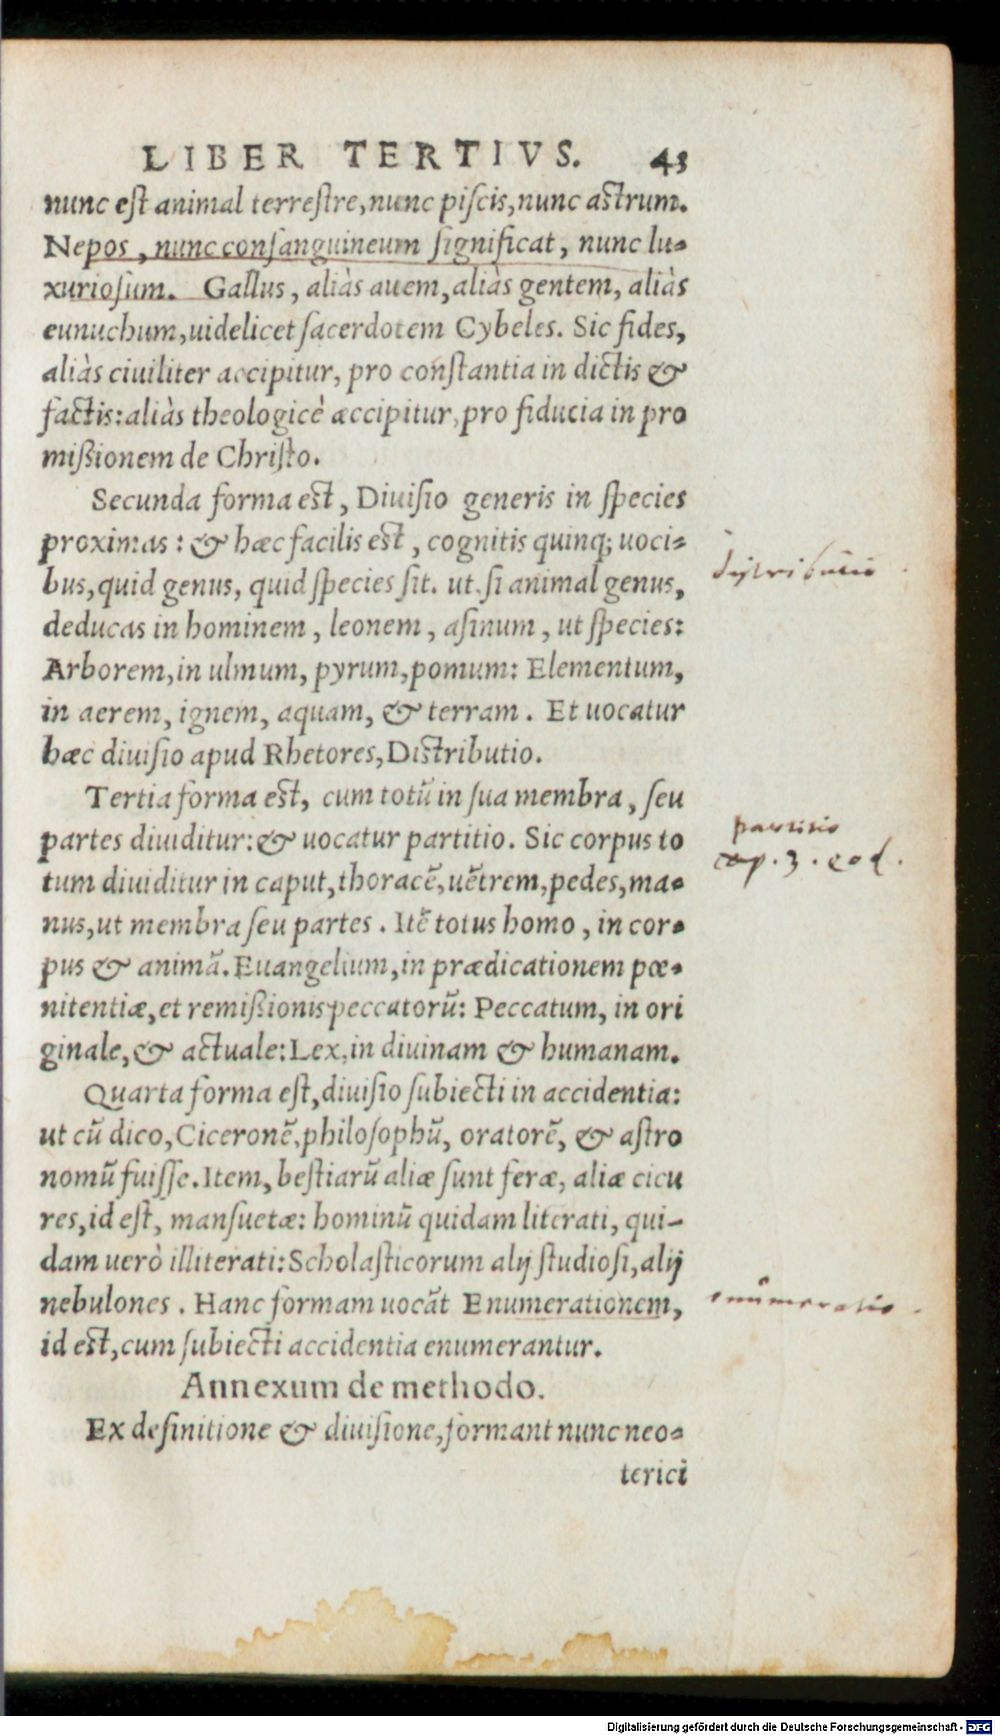 LIBER TERTIVS. 43
nunc est animal terrestre, nunc piscis, nunc astrum.
Nepos, nunc consanguineum significat, nunc lu-
xuriosum. Gallus, aliàs auem, aliàs gentem, aliàs
eunuchum, uidelicet sacerdotem Cybeles. Sic fides,
aliàs ciuiliter accipitur, pro constantia in dictis &
factis: aliàs theologicè accipitur, pro fiducia in pro
mißionem de Christo.
Secunda forma est, Diuisio generis in species
proximas: & hæc facilis est, cognitis quinq; uoci-
bus, quid genus, quid species sit. ut si animal genus,
deducas in hominem, leonem, asinum, ut species:
Arborem, in ulmum, pyrum, pomum: Elementum,
in aerem, ignem, aquam, & terram. Et uocatur
hæc diuisio apud Rhetores, Distributio.
distributio
Tertia forma est, cum totū in sua membra, seu
partes diuiditur: & uocatur partitio. Sic corpus to
tum diuiditur in caput, thoracē, uētrem, pedes, ma-
nus, ut membra seu partes. Itē totus homo, in cor-
pus & animā. Euangelium, in prædicationem pœ-
nitentiæ, et remißionis peccatorū: Peccatum, in ori
ginale, & actuale: Lex, in diuinam & humanam.
partitio
cap. 3. eod.
Quarta forma est, diuisio subiecti in accidentia:
ut cū dico, Ciceronē, philosophū, oratorē, & astro
nomū fuisse. Item, bestiarū aliæ sunt feræ, aliæ cicu
res, id est, mansuetæ: hominū quidam literati, qui-
dam uerò illiterati: Scholasticorum alij studiosi, alij
nebulones. Hanc formam uocāt Enumerationem,
id est, cum subiecti accidentia enumerantur.
enumeratio
Annexum de methodo.
Ex definitione & diuisione, formant nunc neo-
terici
Digitalisierung gefördert durch die Deutsche Forschungsgemeinschaft - DFG